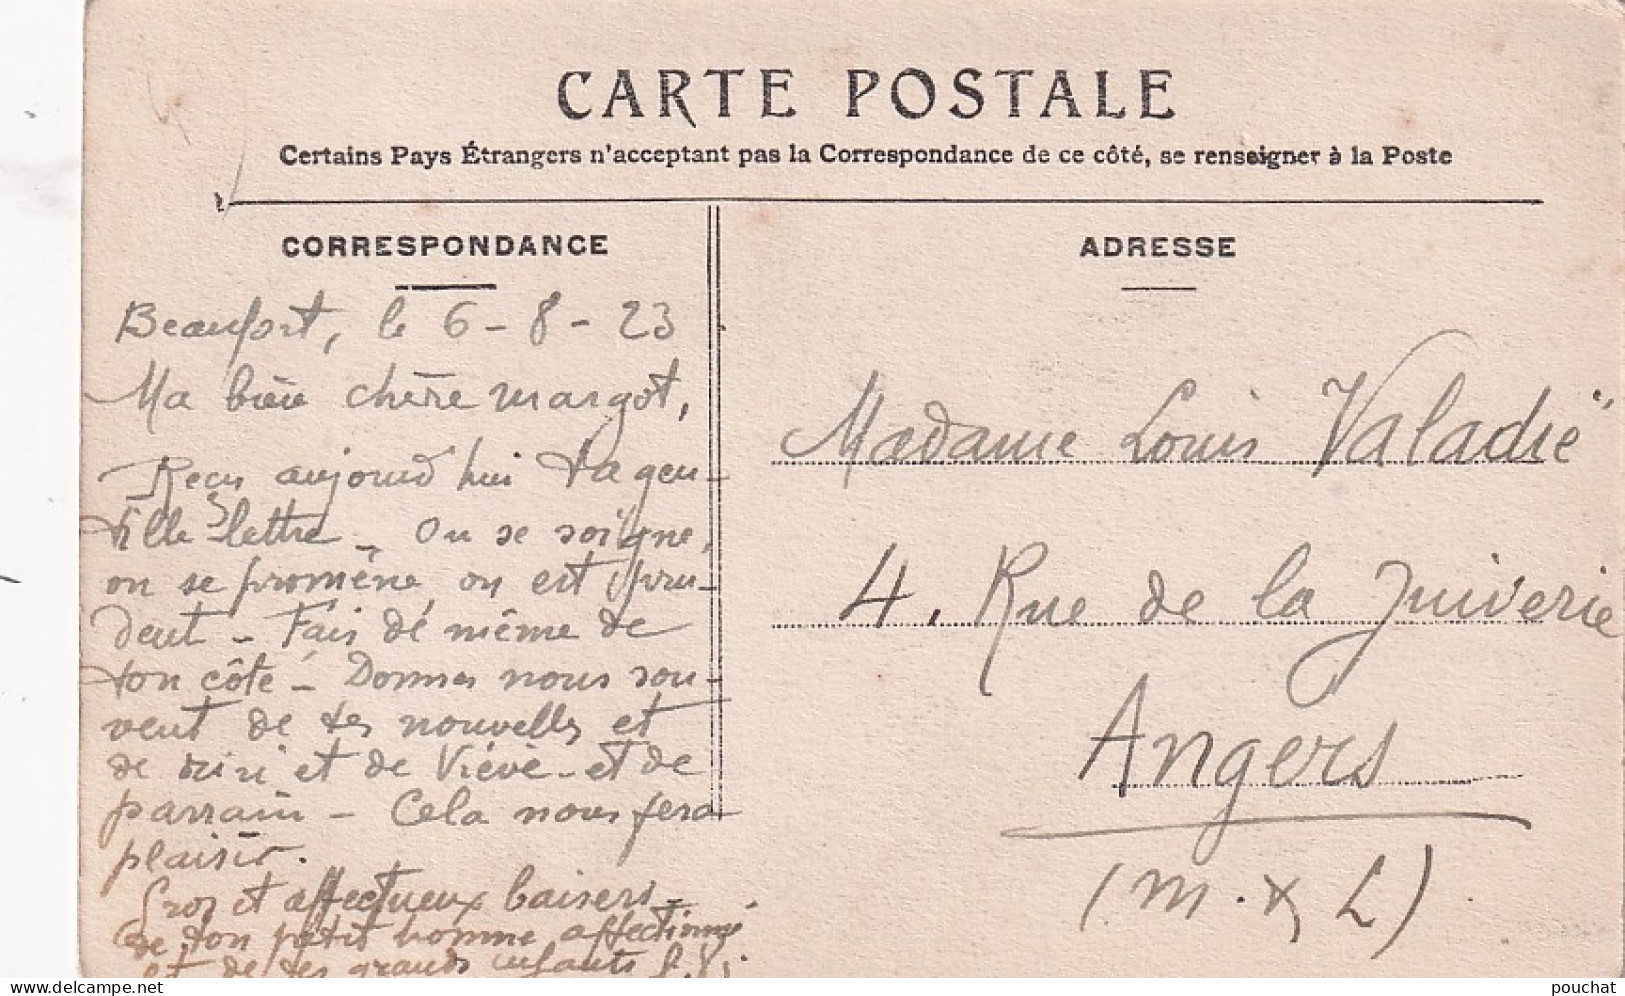 CARTE POSTALE
Certains Pays Étrangers n'acceptant pas la Correspondance de ce côté, se renseigner à la Poste
CORRESPONDANCE
Beaufort, le 6-8-23
Ma bien chère Margot,
Reçu aujourd'hui ta gen-
tille lettre - On se soigne,
on se promène, on est pru-
dent - Fais de même de
ton côté - Donnes nous sou-
vent de tes nouvelles et
de Riri et de Viève - et de
parrain - Cela nous fera
plaisir.
Gros et affectueux baisers
de ton petit homme affectionné
et de tes grands enfants
ADRESSE
Madame Louis Valadié
4, Rue de la Juiverie
Angers
(M. & L)
pouchat